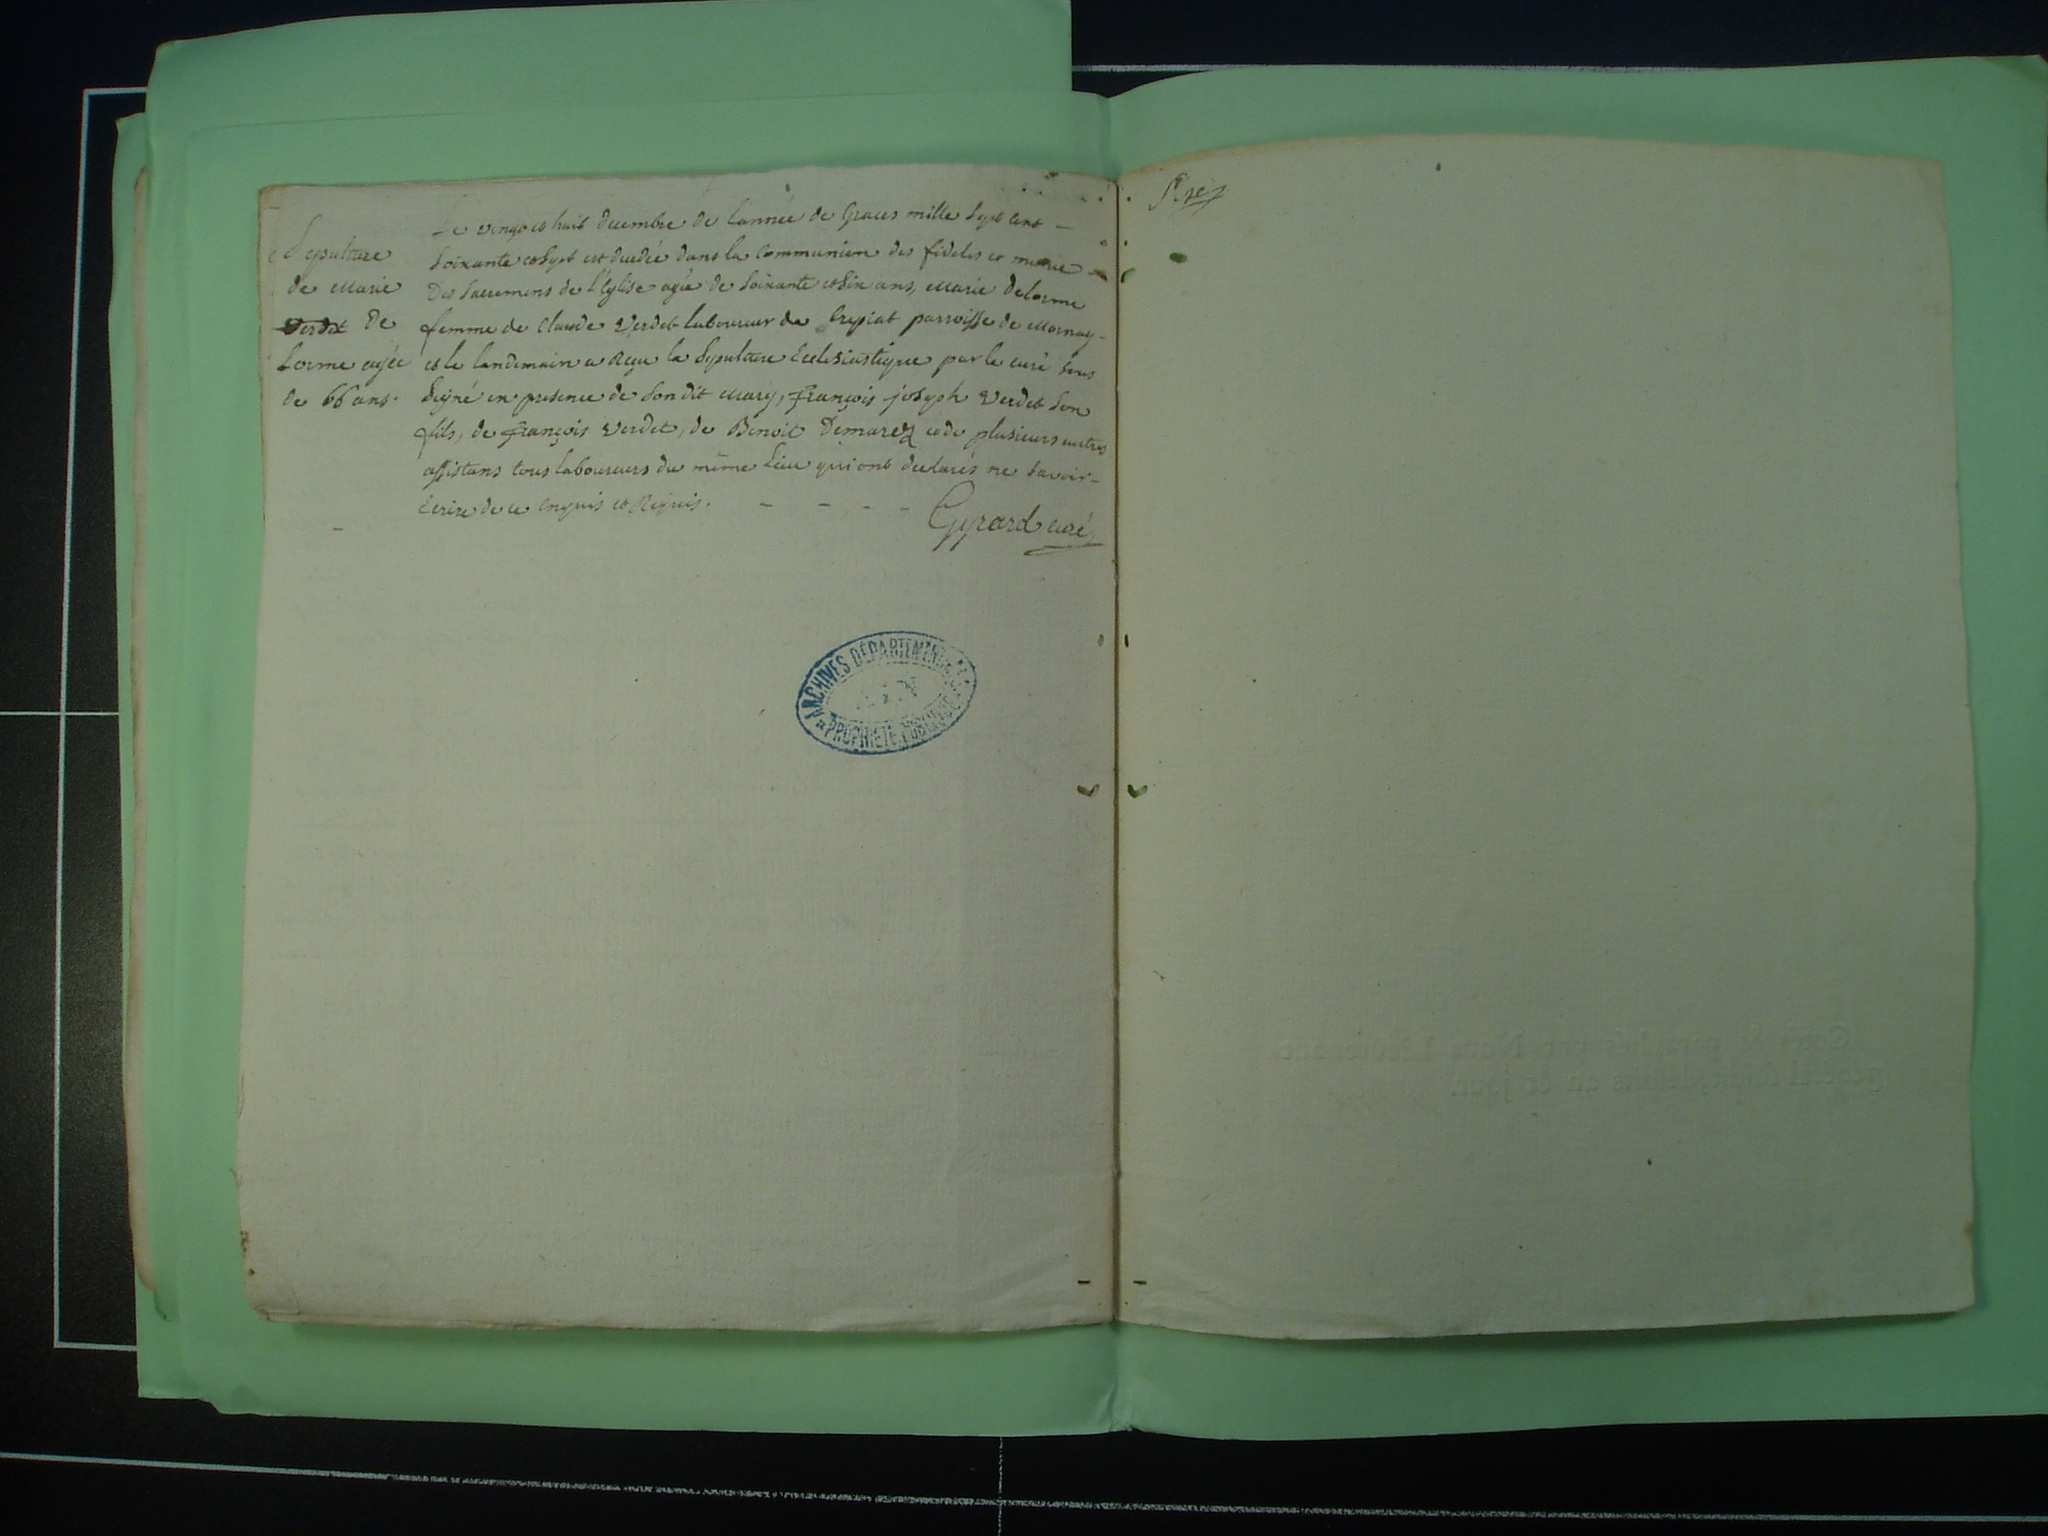 Sepulture
de Marie
Verdet de
Lorme agée
de 66 ans.
Le vingt et huit decembre de l'année de Graces mille sept cent
soixante et sept est decedée dans la Communion des fideles et munie
Des Sacremens de l'Eglise agée de soixante et six ans, Marie Delorme
femme de Claude Verdet laboureur de Crepiat parroisse de Mornay
et le landemain a Reçu la Sepulture Ecclesiastique par le curé sous
signé en presence de son dit Mary, François joseph Verdet son
fils, de François Verdet, de Benoit Demarez et de plusieurs autres
assistans tous laboureurs du même lieu qui ont declarés ne savoir
Ecrire de ce enquis et Requis.
Gyrard curé
ARCHIVES DÉPARTEMENTALES
AIN
PROPRIÉTÉ PUBLIQUE